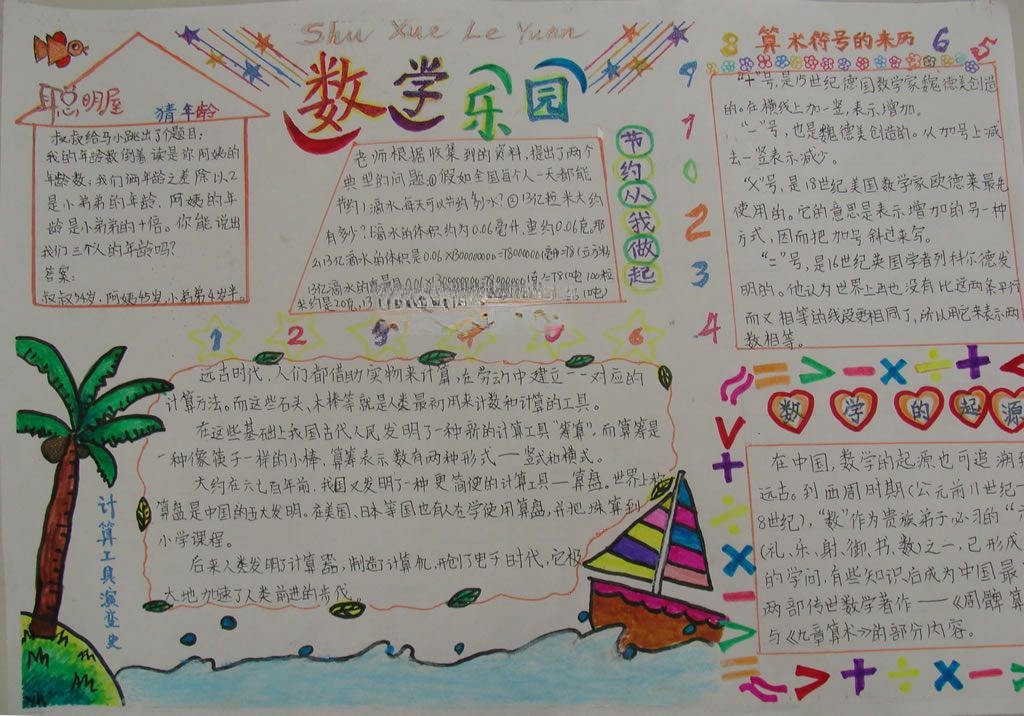 Shu Xue Le Yuan
数学乐园
聪明屋
猜年龄
叔叔给马小跳出了个题目:
我的年龄数倒着读是你阿姨的
年龄数,我们俩年龄之差除以2
是小弟弟的年龄,阿姨的年
龄是小弟弟的十倍。你能说出
我们三个人的年龄吗?
答案:
叔叔54岁,阿姨45岁,小弟弟4岁半。
老师根据收集到的资料,提出了两个
典型的问题:①假如全国每个人一天都能
节约1滴水,每天可以节约多少水?②13亿粒米大约
有多少?1滴水的体积约为0.06毫升,重约0.06克,那
么13亿滴水的体积是0.06×1300000000=78000000(毫升)=78(立方米)
13亿滴水的质量是
100粒
米约是2克,13
节约从我做起
8
算术符号的来历
6
5
9
7
0
2
3
4
"+"号,是15世纪德国数学家魏德美创造
的。在横线上加一竖,表示增加。
"-"号,也是魏德美创造的。从加号上减
去一竖表示减少。
"×"号,是18世纪美国数学家欧德莱最先
使用的。它的意思是表示增加的另一种
方式,因而把加号斜过来写。
"="号,是16世纪英国学者列科尔德发
明的。他认为世界上再也没有比这两条平行
而又相等的线段更相同了,所以用它来表示两
数相等。
1 2 3 4 5 6
远古时代,人们都借助实物来计算,在劳动中建立一一对应的
计算方法。而这些石头、木棒等就是人类最初用来计数和计算的工具。
在这些基础上我国古代人民发明了一种新的计算工具"筹算",而算筹是
一种像筷子一样的小棒,算筹表示数有两种形式——竖式和横式。
大约在六七百年前,我国又发明了一种更简便的计算工具——算盘。世界上
算盘是中国的五大发明。在美国、日本等国也有人在学使用算盘,并把珠算列
小学课程。
后来人类发明了计算器,制造了计算机,开创了电子时代,它极
大地加速了人类前进的步伐。
计算工具演变史
= > - × ÷ + <
数学的起源
∨ + ÷ × - > =
在中国,数学的起源也可追溯到
远古。到西周时期(公元前11世纪—
8世纪),"数"作为贵族弟子必习的"六
(礼、乐、射、御、书、数)之一,已形成
的学问,有些知识后成为中国最
两部传世数学著作——《周髀算
与《九章算术》的部分内容。
> + ÷ × - >